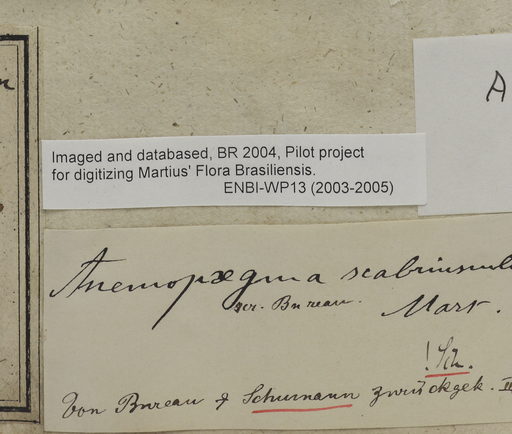 A
Imaged and databased, BR 2004, Pilot project
for digitizing Martius' Flora Brasiliensis.
ENBI-WP13 (2003-2005)
Anemopægma scabriuscul
scr. Bureau. Mart.
! Sch.
Von Bureau & Schumann zurückgek. II